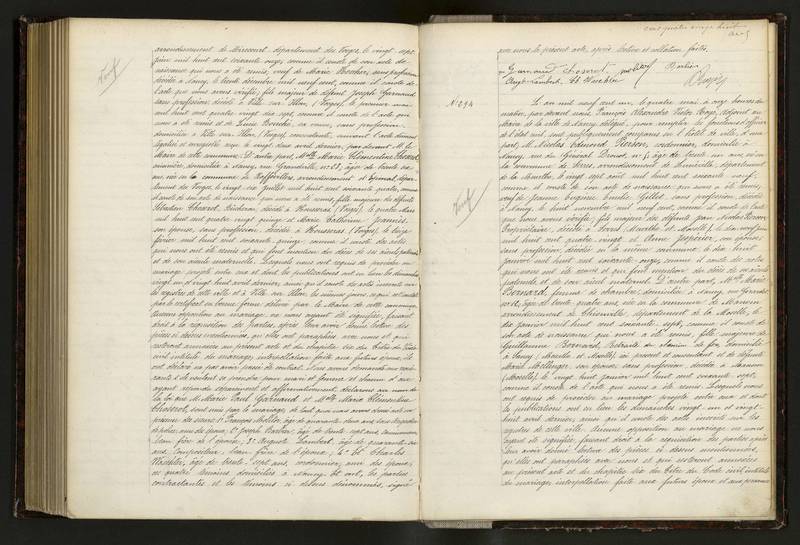 arrondissement de Mirecourt, département des Vosges, le vingt sept
juin mil huit cent soixante onze, comme il conste de son acte de
naissance qui nous a été remis, veuf de Marie sans profession
décédée à Nancy, le trente décembre mil neuf cent, comme il conste de
l'acte que nous avons vérifié; fils majeur de défunt Joseph Garnaud
sans profession, décédé à Ville sur Illon, (Vosges), le premier
mil huit cent quatre vingt dix sept, comme il conste de l'acte qui
nous a été remis et de Luise sa veuve, sans profession,
domiciliée à Ville sur Illon, (Vosges), consentante, suivant l'acte dûment
légalisé et enregistré reçu le vingt deux avril dernier, par devant M. le
Maire de cette commune. D'autre part, Melle Marie Clémentine Thoseret
domiciliée à Nancy, rue Grandville, no 23, âgée de trente
ans, née en la commune de arrondissement d'Epinal, dépar-
tement des Vosges, le vingt six juillet mil huit cent soixante quatre, comme
il conste de son acte de naissance qui nous a été remis, fille majeure de défunts
Sébastien Thoseret, décédé à Housseras (Vosges), le quatre Mars
mil huit cent quatre vingt quinze et Marie Catherine
son épouse, sans profession, décédée à Housseras, (Vosges), le treize
février mil huit cent soixante quinze, comme il conste des actes
qui nous ont été remis et qui font mention du décès de ses aïeuls paternels
et de son aïeule maternelle. Lesquels nous ont requis de procéder au
mariage projeté entre eux et dont les publications ont eu lieu les dimanches
vingt un et vingt huit avril dernier, ainsi qu'il conste des actes inscrits sur
les registres de cette ville et à Ville sur Illon, les mêmes jours, ce qui est constaté
par le certificat en bonne forme délivré par le Maire de cette commune.
Aucune opposition au mariage ne nous ayant été signifiée, faisant
droit à la réquisition des parties, après leur avoir donné lecture des
pièces ci dessus mentionnées, qu'elles ont paraphées avec nous et qui
resteront annexées au présent acte et du chapitre six du titre du Code
civil intitulé du mariage, interpellation faite aux futurs époux, ils
ont déclaré ne pas avoir passé de contrat. Nous avons demandé au
et à la s'ils veulent se prendre pour mari et femme et chacun d'eux
ayant répondu séparément et affirmativement, déclarons au nom de
la loi que M. Marie Paul Garnaud et Melle Marie Clémentine
Thoseret, sont unis par le mariage, de tout quoi nous avons dressé acte en
présence des sieurs: 1o François âgé de quarante deux ans,
de police, ami de 2o Joseph Barbier, âgé de trente sept ans,
beau frère de l'épouse; 3o Auguste Lambert, âgé de quarante un
ans, Compositeur, beau frère de l'époux; 4o et Charles
Waechter, âgé de trente sept ans, cordonnier, ami des époux;
les quatre témoins domiciliés à Nancy. Et ont, les parties
contractantes et les témoins ci dessus dénommés, signé
Veuf
cent quatre vingt huit
avec nous le présent acte, après lecture et collation faites.
Garnaud Thoseret Barbier
Aug. Lambert Ch Waechter
No 294
Veuf
L'an mil neuf cent un, le quatre mai, à onze heures du
matin, par devant nous, François Alexandre Victor Boyé, adjoint au
Maire de la ville de Nancy, délégué pour remplir les fonctions d'officier
de l'état civil, sont publiquement comparus en l'hôtel de ville, d'une
part, M. Nicolas Edmond Pierson, cordonnier, domicilié à
Nancy, rue du Général Drouot, no 5, âgé de trente un ans, né en
la commune de arrondissement de Lunéville, département
de la Meurthe, le vingt sept août mil huit cent soixante neuf,
comme il conste de son acte de naissance qui nous a été remis,
veuf de Jeanne Eugénie Emilie Gillet, sans profession, décédée
à Nancy, le huit novembre mil neuf cent, comme il conste de l'acte
que nous avons vérifié; fils majeur des défunts Jean Nicolas Pierson,
Propriétaire, décédé à (Meurthe et Moselle), le dix neuf juin
mil huit cent quatre vingt et Anne son épouse,
sans profession, décédée en la même commune, le dix huit
janvier mil huit cent soixante onze, comme il conste des actes
qui nous ont été remis et qui font mention du décès de ses aïeuls
paternels et de son aïeul maternel. D'autre part, Melle Marie
Bernard, femme de chambre, domiciliée à Nancy, rue
no 2, âgée de trente quatre ans, née en la commune de
arrondissement de Thionville, département de la Moselle, le
dix janvier mil huit cent soixante sept, comme il conste de
son acte de naissance qui nous a été remis, fille majeure de
Guillaume Bernard, Retraité du chemin de fer, domicilié
à Jarny (Meurthe et Moselle), ici présent et consentant et de défunte
Marie Mellinger, son épouse, sans profession, décédée à
(Moselle), le vingt huit janvier mil huit cent soixante sept,
comme il conste de l'acte qui nous a été remis. Lesquels nous
ont requis de procéder au mariage projeté entre eux et dont
les publications ont eu lieu les dimanches vingt un et vingt
huit avril dernier, ainsi qu'il conste des actes inscrits sur les
registres de cette ville. Aucune opposition au mariage ne nous
ayant été signifiée, faisant droit à la réquisition des parties, après
leur avoir donné lecture des pièces ci dessus mentionnées,
qu'elles ont paraphées avec nous et qui resteront annexées
au présent acte et du chapitre six du titre du Code civil intitulé
du mariage, interpellation faite aux futurs époux et aux personnes